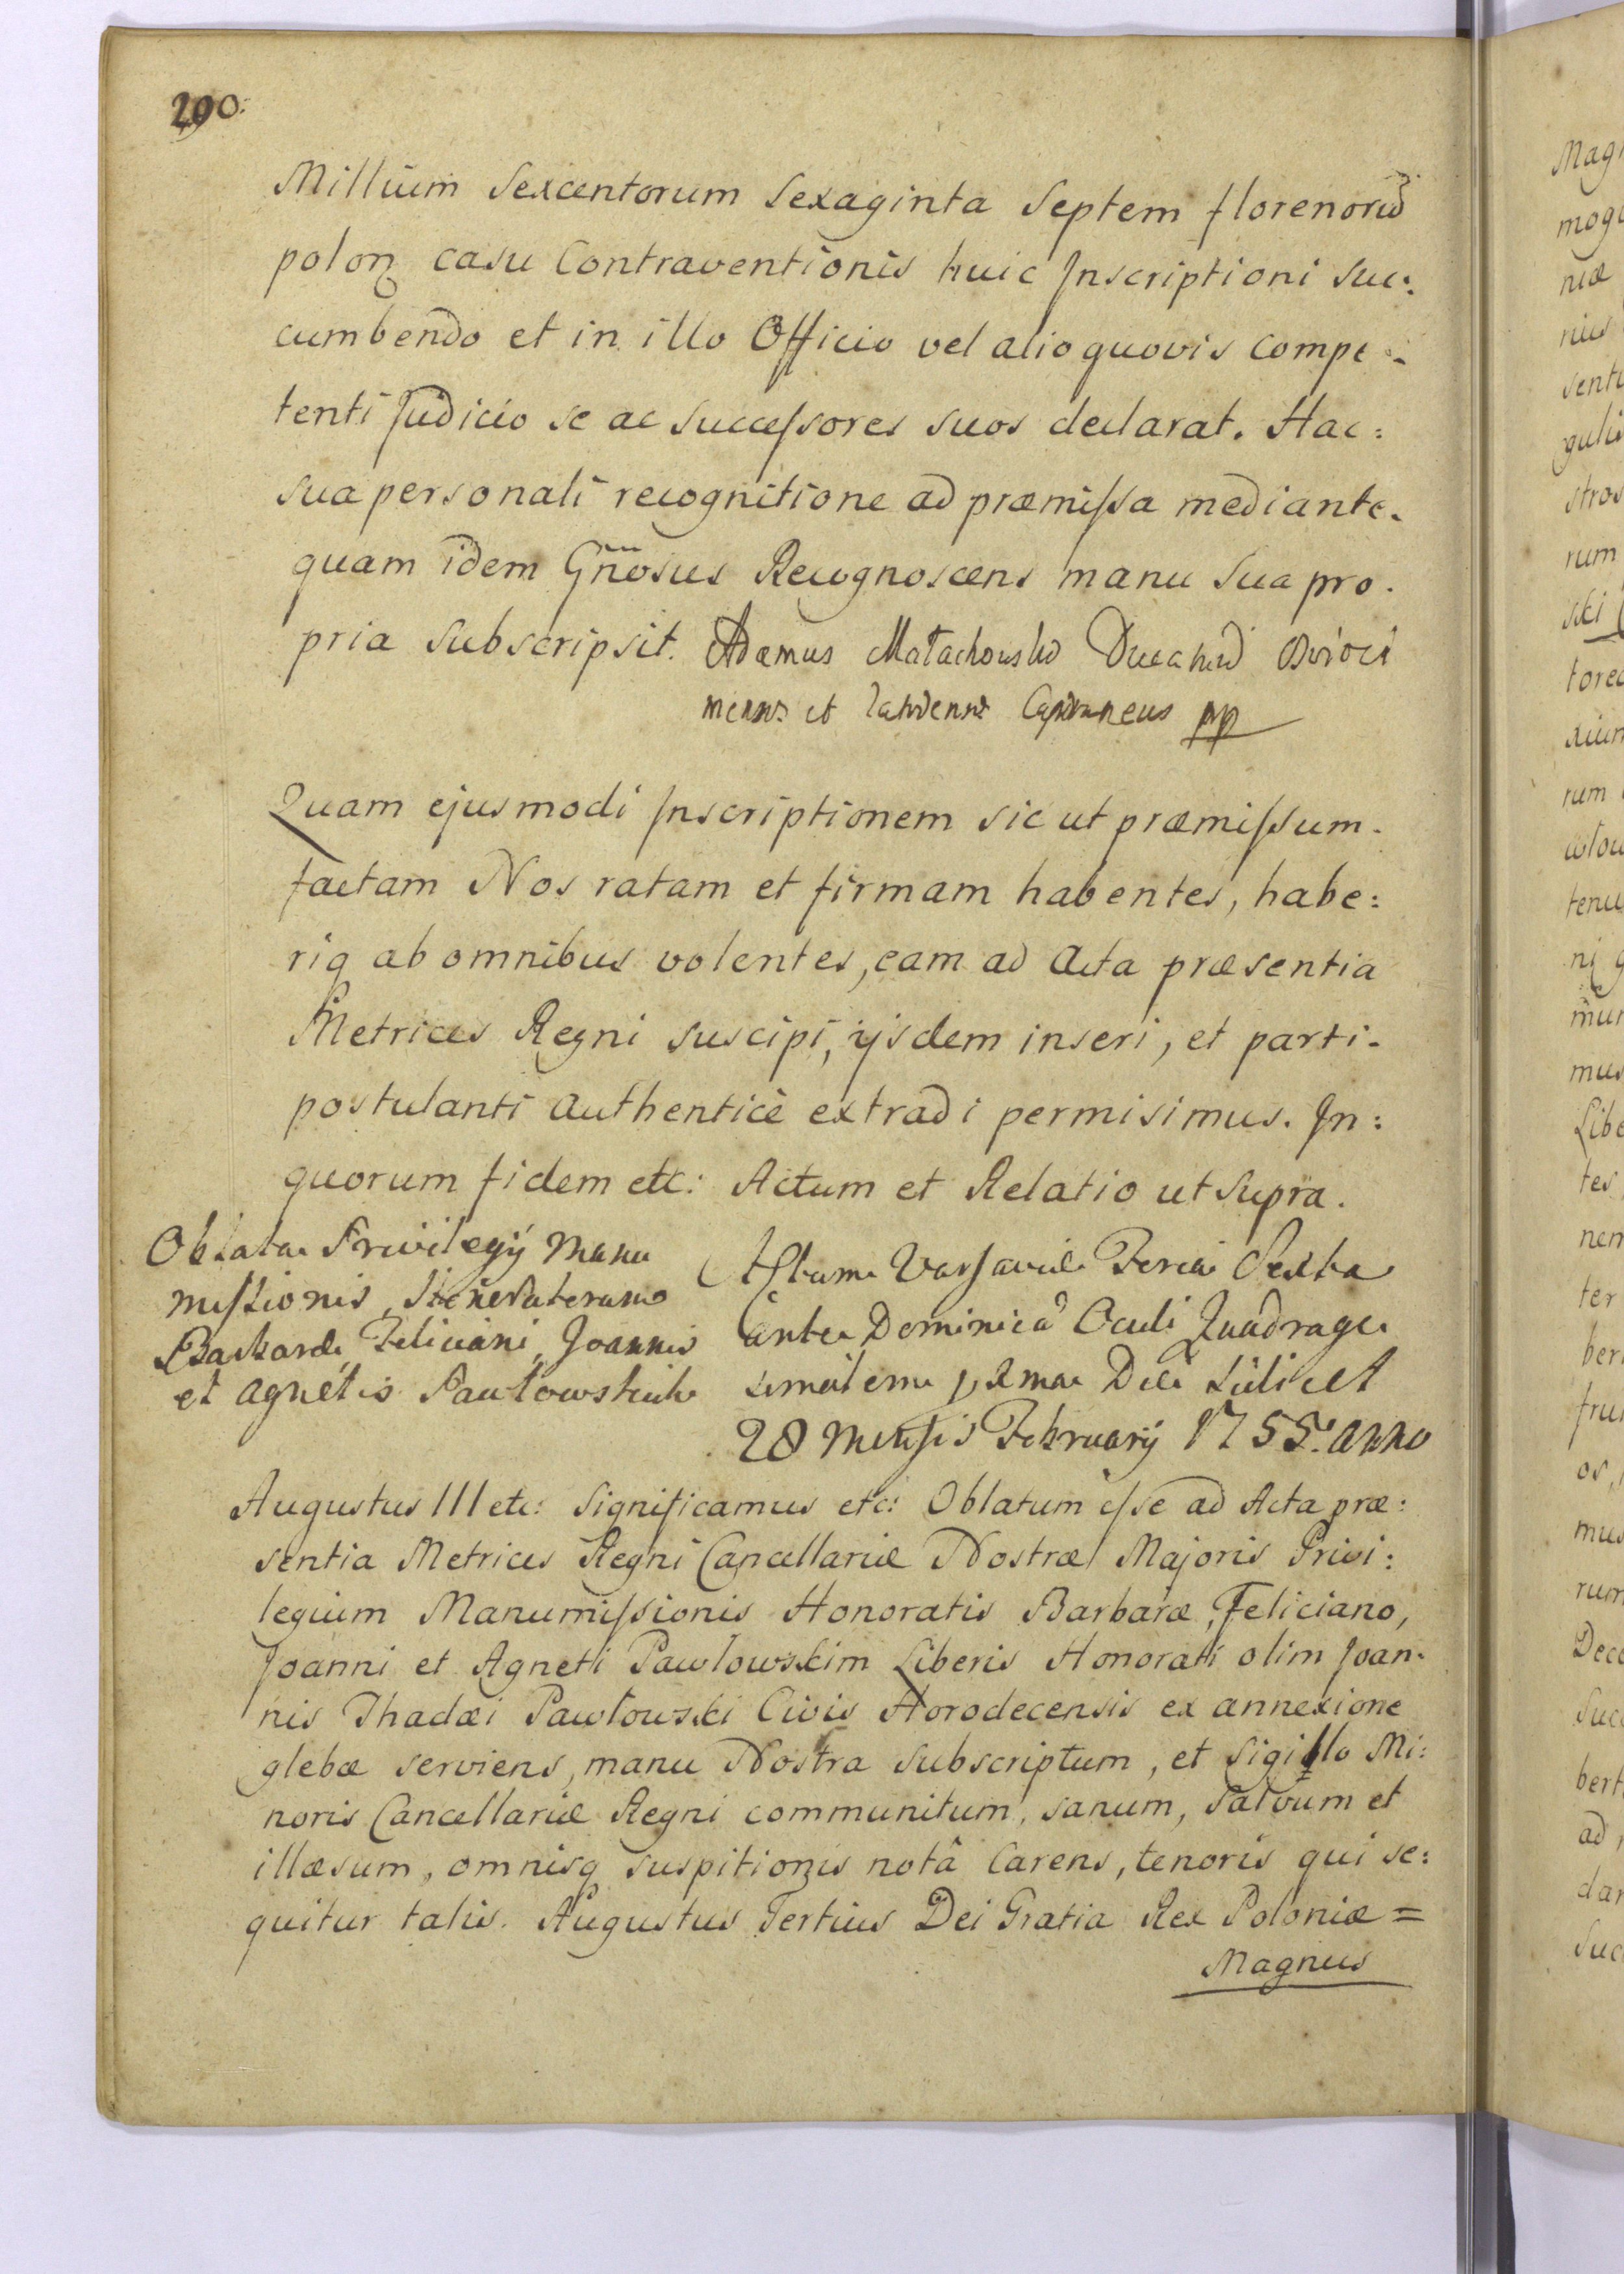 290.
Millium Sexcentorum Sexaginta Septem florenorũ
polonq casu Contraventionis huic Inscriptioni suc:
cumbendo et in illo Officio vel alio quovis Compe:
tenti Judicio se ac Successores suos declarat. Hac:
sua personali recognitione ad præmissa mediante.
quam idem Gñosus Recognoscens manu Sua pro.
pria Subscripsit. Adamus Małachowski
et Capitaneus pp
Quam ejusmodi Inscriptionem sic ut præmissum.
factam Nos ratam et firmam habentes, habe:
riq ab omnibus volentes, eam ad Acta præsentia
Metrices Regni suscipi, ijsdem inseri, et parti.
postulanti Authenticè extradi permisimus. In:
quorum fidem etc: Actum et Relatio ut Supra.
Oblata Privilegij Manu
missionis,
Barbaræ, Feliciani, Joannis
et Agnetis Pawłowskich
Actum Varsaviæ Feria Sexta
ante Dominicã Oculi Quadrage
simalem pxma Die Scilicet
28 Mensis February 1755. Anno
Augustus III etc: Significamus etc: Oblatum esse ad Acta præ:
sentia Metrices Regni Cancellariæ Nostræ Majoris Privi:
legium Manumissionis Honoratis Barbaræ, Feliciano,
Joanni et Agneti Pawlowskim Liberis Honorati olim Joan.
nis Thadæi Pawłowski Civis Horodecensis ex annexione
glebæ serviens, manu Nostra subscriptum, et Sigillo Mi:
noris Cancellariæ Regni communitum, sanum, Salvum et
illæsum, omnisq suspitionis notâ Carens, tenoris qui se:
quitur talis. Augustus Tertius Dei Gratia Rex Poloniæ =
Magnus